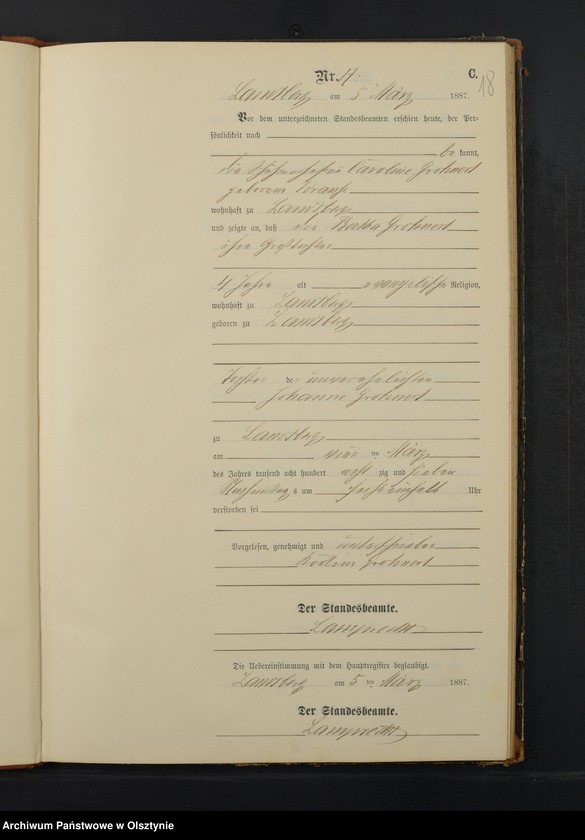 Nr. 17
C.
18
Landsberg am 5 März 1887.
Vor dem unterzeichneten Standesbeamten erschien heute, der Per-
sönlichkeit nach
be kannt,
die Caroline Grohnert
geborene
wohnhaft zu Landsberg
und zeigte an, daß die Bertha Grohnert
ihre Großtochter
4 Jahre alt evangelische Religion,
wohnhaft zu Landsberg
geboren zu Landsberg
Tochter der unverehelichten
Johanne Grohnert
zu Landsberg
am vier ten März
des Jahres tausend acht hundert acht zig und sieben
Nachmittag s um sechs einhalb Uhr
verstorben sei
Vorgelesen, genehmigt und unterschrieben
Grohnert
Der Standesbeamte.
Lamprecht
Die Uebereinstimmung mit dem Hauptregister beglaubigt.
Landsberg am 5 ten März 1887.
Der Standesbeamte.
Lamprecht
Archiwum Państwowe w Olsztynie